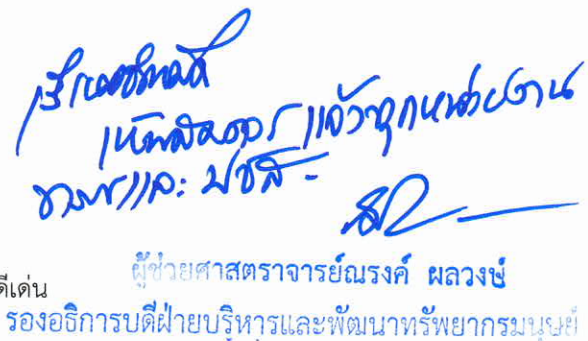 เรียนอธิการบดี
เห็นสมควร แจ้งทุกหน่วยงาน
และ ปชส.
ดีเด่น
ผู้ช่วยศาสตราจารย์ณรงค์ ผลวงษ์
รองอธิการบดีฝ่ายบริหารและพัฒนาทรัพยากรมนุษย์